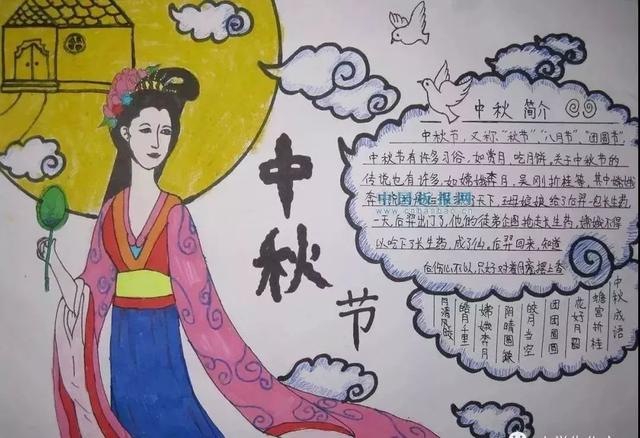 中
秋
节
中秋简介
中秋节,又称"秋节""八月节","团圆节",
中秋节有许多习俗,如赏月、吃月饼,关于中秋节的
传说也有许多,如嫦娥奔月,吴刚折桂等,其中嫦娥
奔 天下,王母娘娘给后羿一包长生药,
中国板报网
一天,后羿出门了,他的徒弟企图抢走长生药,嫦娥不得
以吞下了长生药,成了仙,后羿回来,知道
后伤心不以,只好对着月亮摆上香
中秋成语
蟾宫折桂
花好月圆
团团圆圆
皓月当空
阴晴圆缺
嫦娥奔月
皓月千里
月清风晓